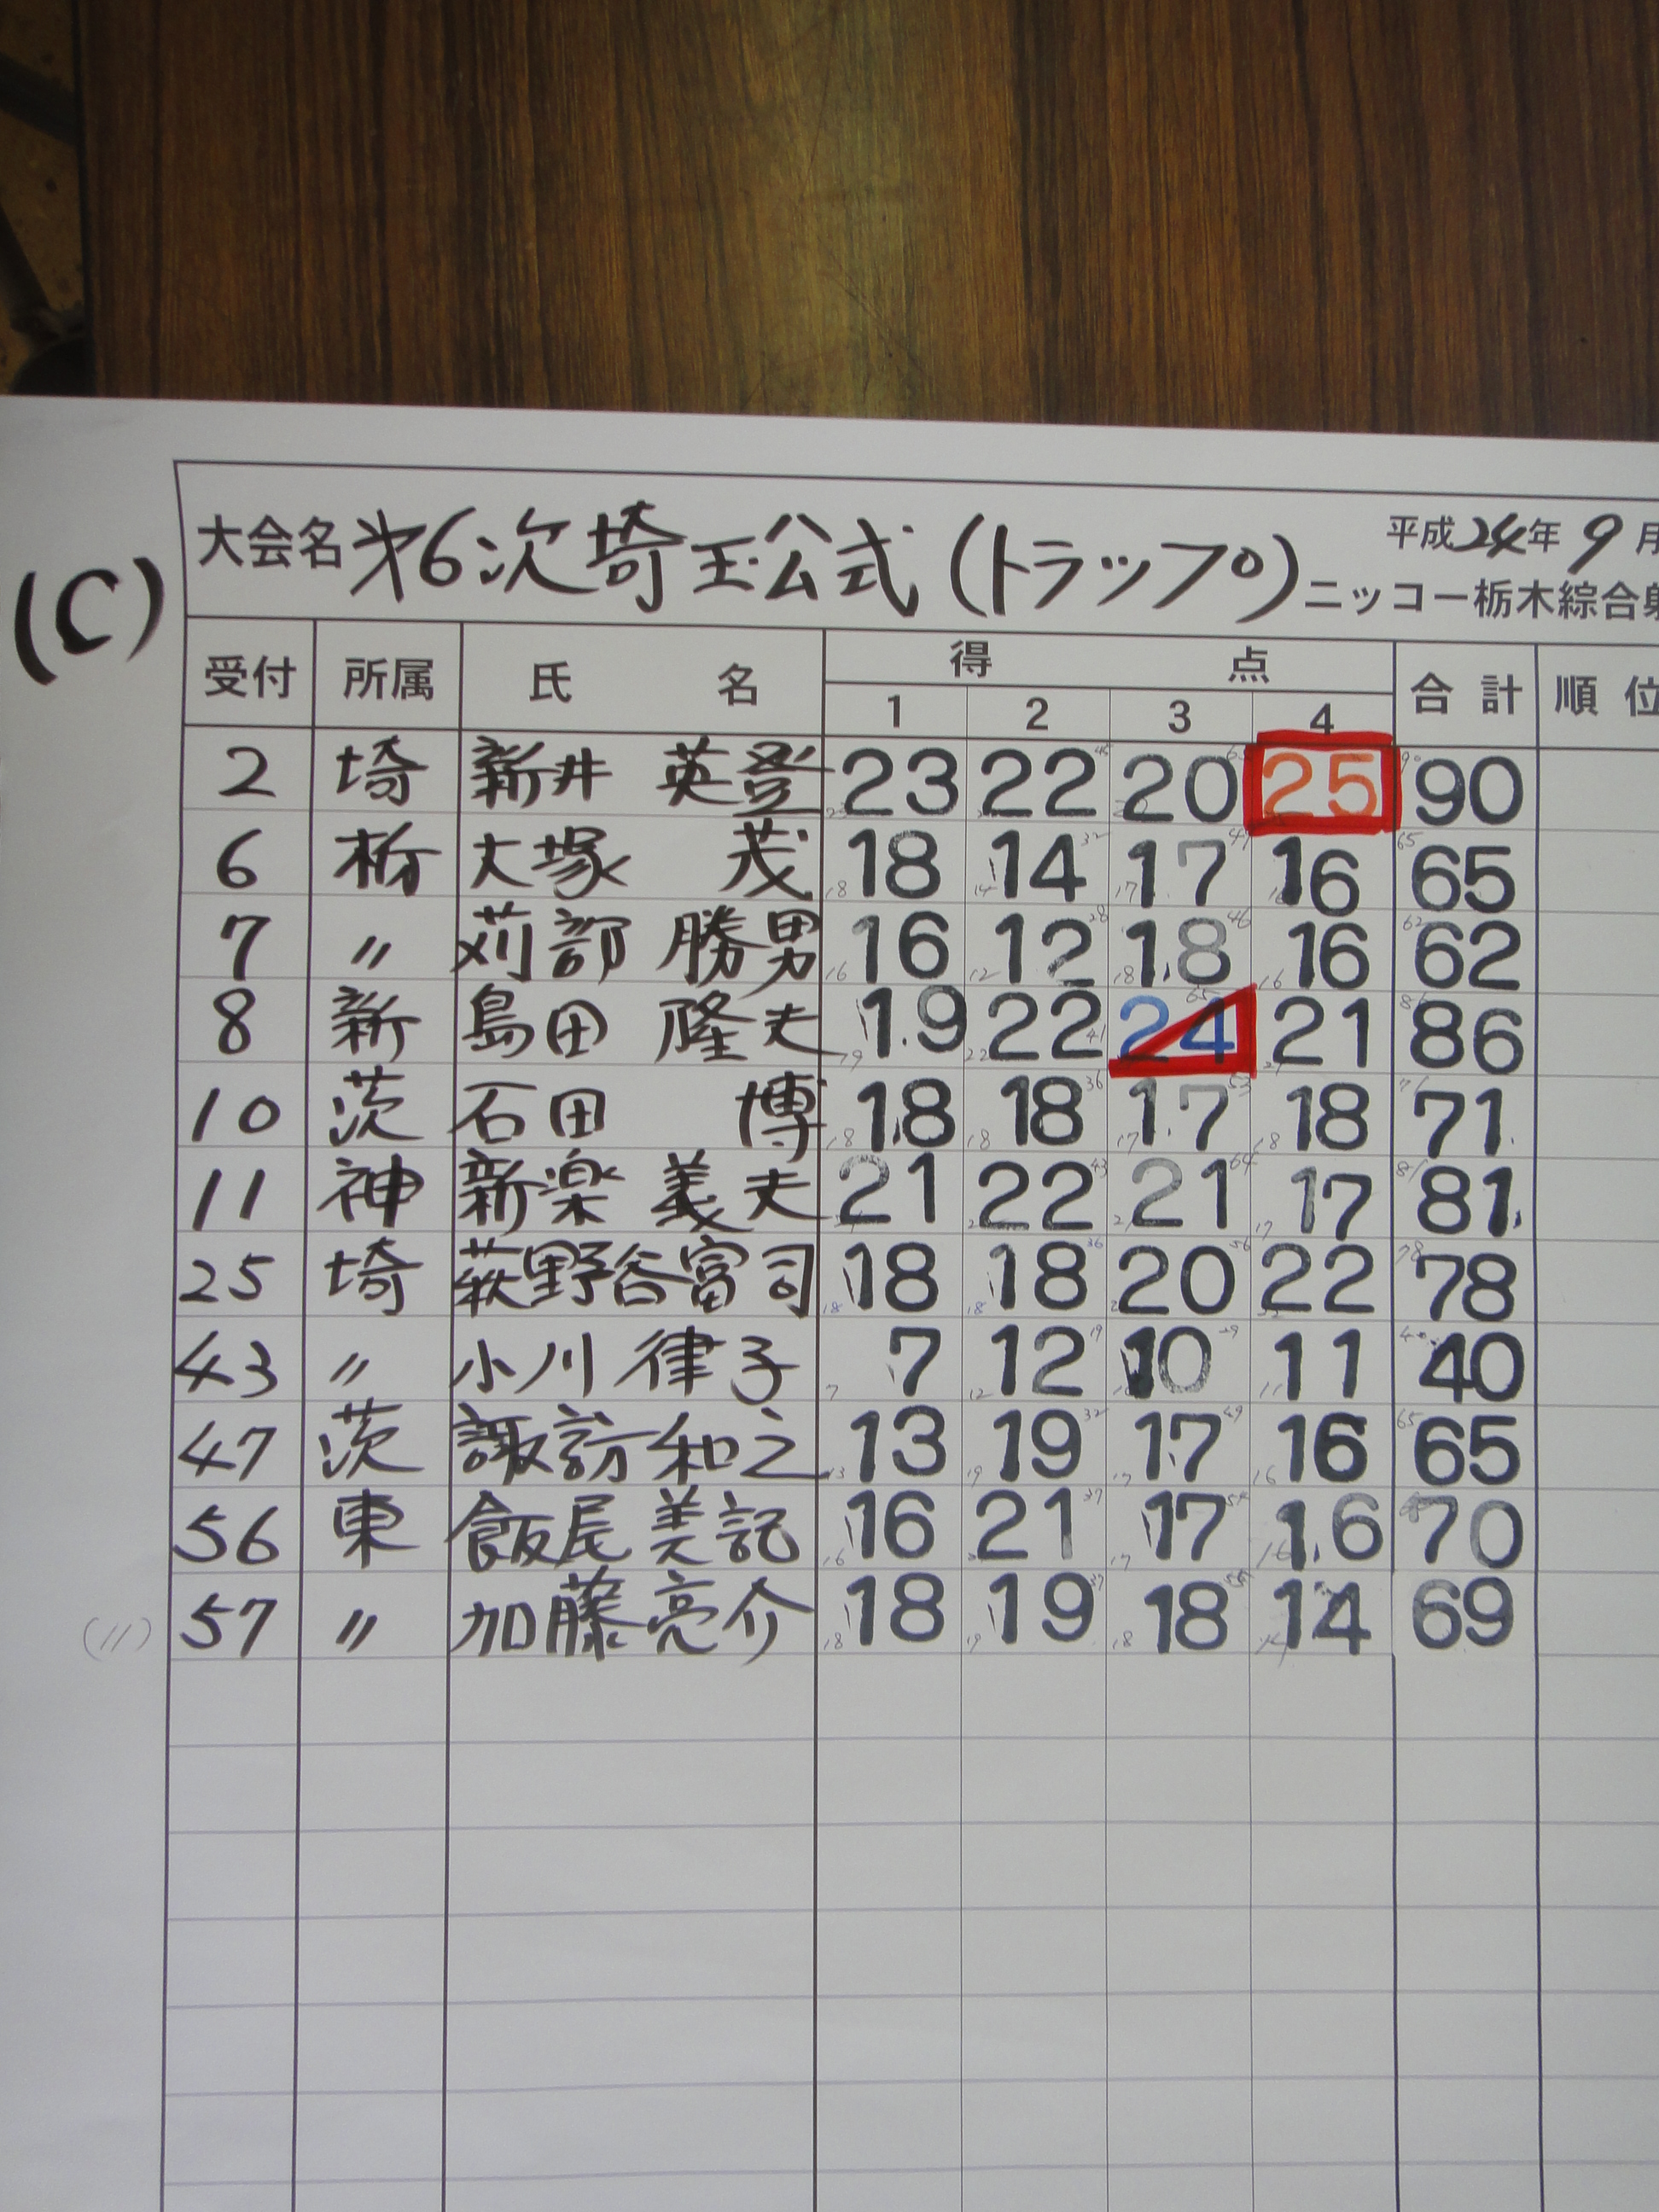 (C)
大会名 第6次埼玉公式(トラップ) 平成24年9月
ニッコー栃木綜合射
受付 所属 氏名 得点 合計 順位
1 2 3 4
2 埼 新井 英登 23 22 20 25 90
6 栃 大塚 茂 18 14 17 16 65
7 〃 苅部 勝男 16 12 18 16 62
8 新 島田 隆夫 19 22 24 21 86
10 茨 石田 博 18 18 17 18 71
11 神 新楽 義夫 21 22 21 17 81
25 埼 萩野谷富司 18 18 20 22 78
43 〃 小川 律子 7 12 10 11 40
47 茨 諏訪 和之 13 19 17 16 65
56 東 飯尾 美記 16 21 17 16 70
(11) 57 〃 加藤 亮介 18 19 18 14 69